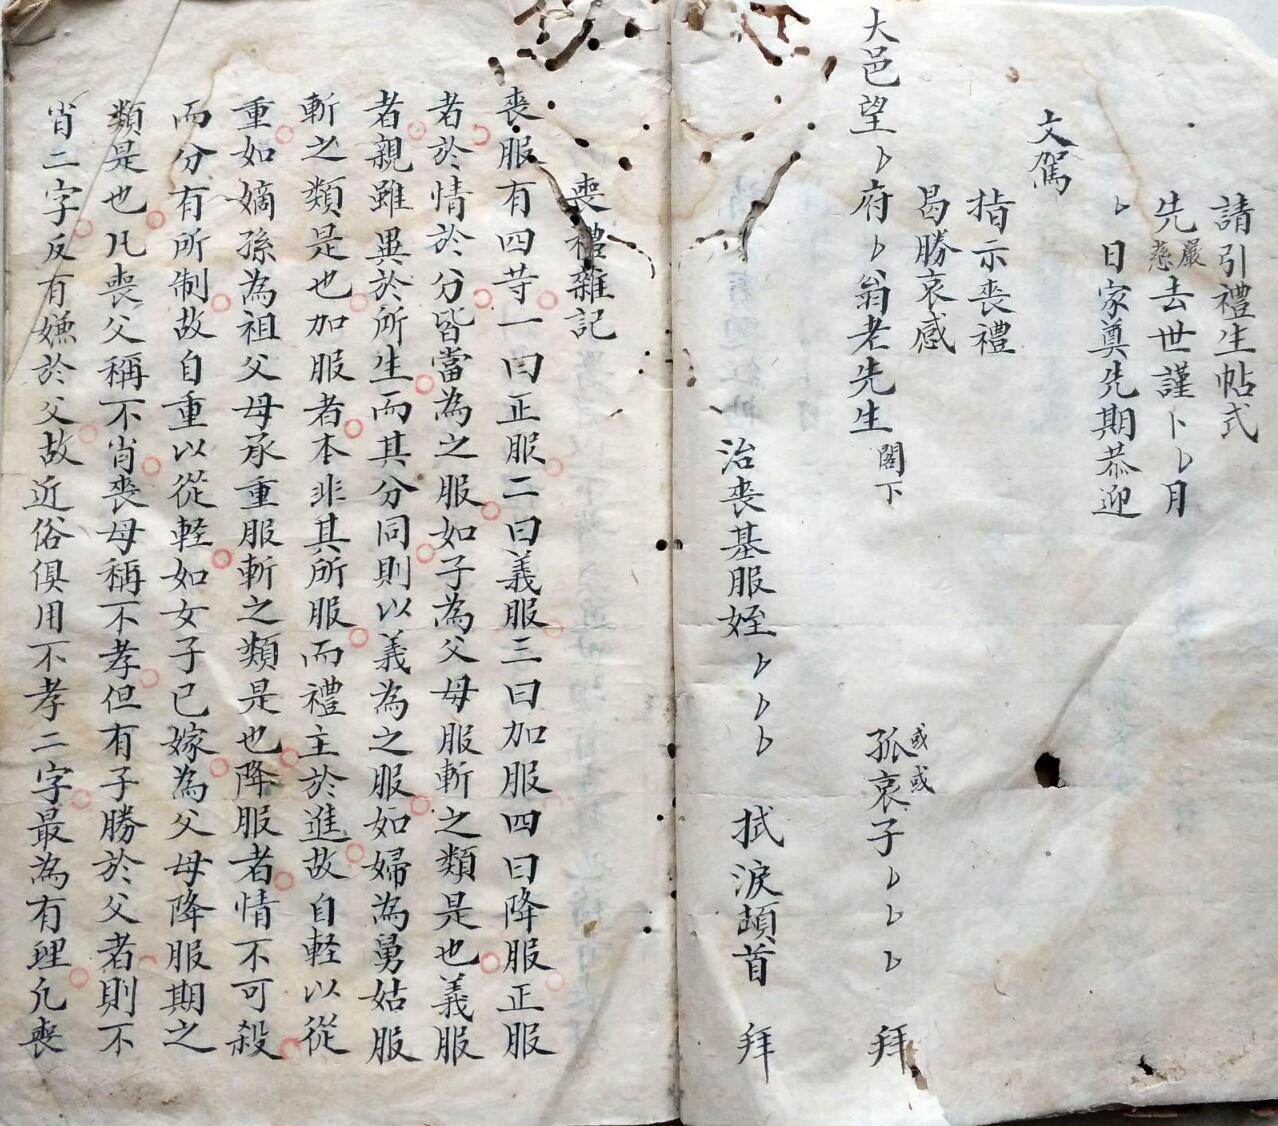 請引禮生帖式
先嚴慈去世謹卜卜月
卜日家奠先期恭迎
文駕
指示喪禮
曷勝哀感
大邑望卜府卜翁老先生 閣下
孤或哀或子卜卜卜 拜
治喪基服姪卜卜卜 拭淚頓首 拜
喪禮雜記
喪服有四苛一曰正服二曰義服三曰加服四曰降服正服
者於情於分皆當為之服如子為父母服斬之類是也義服
者親雖異於所生而其分同則以義為之服如婦為舅姑服
斬之類是也加服者本非其所服而禮主於進故自軽以從
重如嫡孫為祖父母承重服斬之類是也降服者情不可殺
而分有所制故自重以從軽如女子已嫁為父母降服期之
類是也凡喪父稱不肖喪母稱不孝但有子勝於父者則不
肖二字反有嫌於父故近俗俱用不孝二字最為有理凢喪